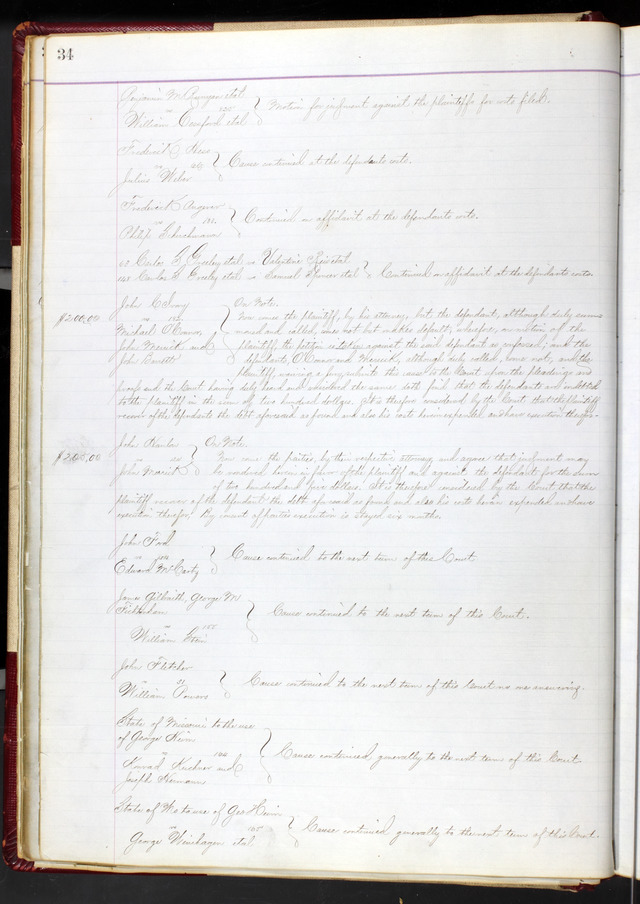 34
Benjamin M Runyan etal
vs
William Crawford etal } Motion for judgment against the plaintiffs for costs filed.
Frederick Hese
vs
Julius Weber } Cause continued at the defendants costs.
Frederick
vs
Philip } Continued on affidavit at the defendants costs.
Carlos S Greeley etal vs Valentine Reis etal
Carlos S Greeley etal vs Samuel Spencer etal } Continued on affidavit at the defendants costs.
John McIvoy On Note.
$200,00 vs Now comes the plaintiff, by his attorney, but the defendant, although duly sum
Michael O'Connor, moned and called, comes not but makes default; wherefore, on motion of the
John Merrick and plaintiff, the petition is taken against the said defendant as confessed; and the
John Barrett defendants, O'Connor and Merrick, although duly called, come not, and the
plaintiff waiving a jury submits this case to the Court upon the pleadings and
proof and the Court having duly heard and considered the same doth find that the defendants are indebted
to the plaintiff in the sum of two hundred dollars. It is therefore considered by the Court that the plaintiff
recover of the defendants the debt aforesaid as found and also his costs herein expended and have execution therefor.
John On Note.
$205,00 vs Now come the parties, by their respective attorneys and agree that judgment may
John Merrick be rendered herein in favor of the plaintiff and against the defendant for the sum
of two hundred and five dollars. It is therefore considered by the Court that the
plaintiff recover of the defendant the debt aforesaid as found and also his costs herein expended and have
execution therefor. By consent of parties execution is stayed six months.
John Ford
vs
Edward McCarty } Cause continued to the next term of this Court
James Gilbraith, George M
Richardson
vs 155
William Stein } Cause continued to the next term of this Court.
John Fletcher
vs 31
William Powers } Cause continued to the next term of this Court no one answering.
State of Missouri to the use
of George Heim
vs
Konrad Kirchner and
Joseph Hermann } Cause continued generally to the next term of this Court
State of Mo to use of Geo Heim
vs 105
George Weinhagen etal } Cause continued generally to the next term of this Court.